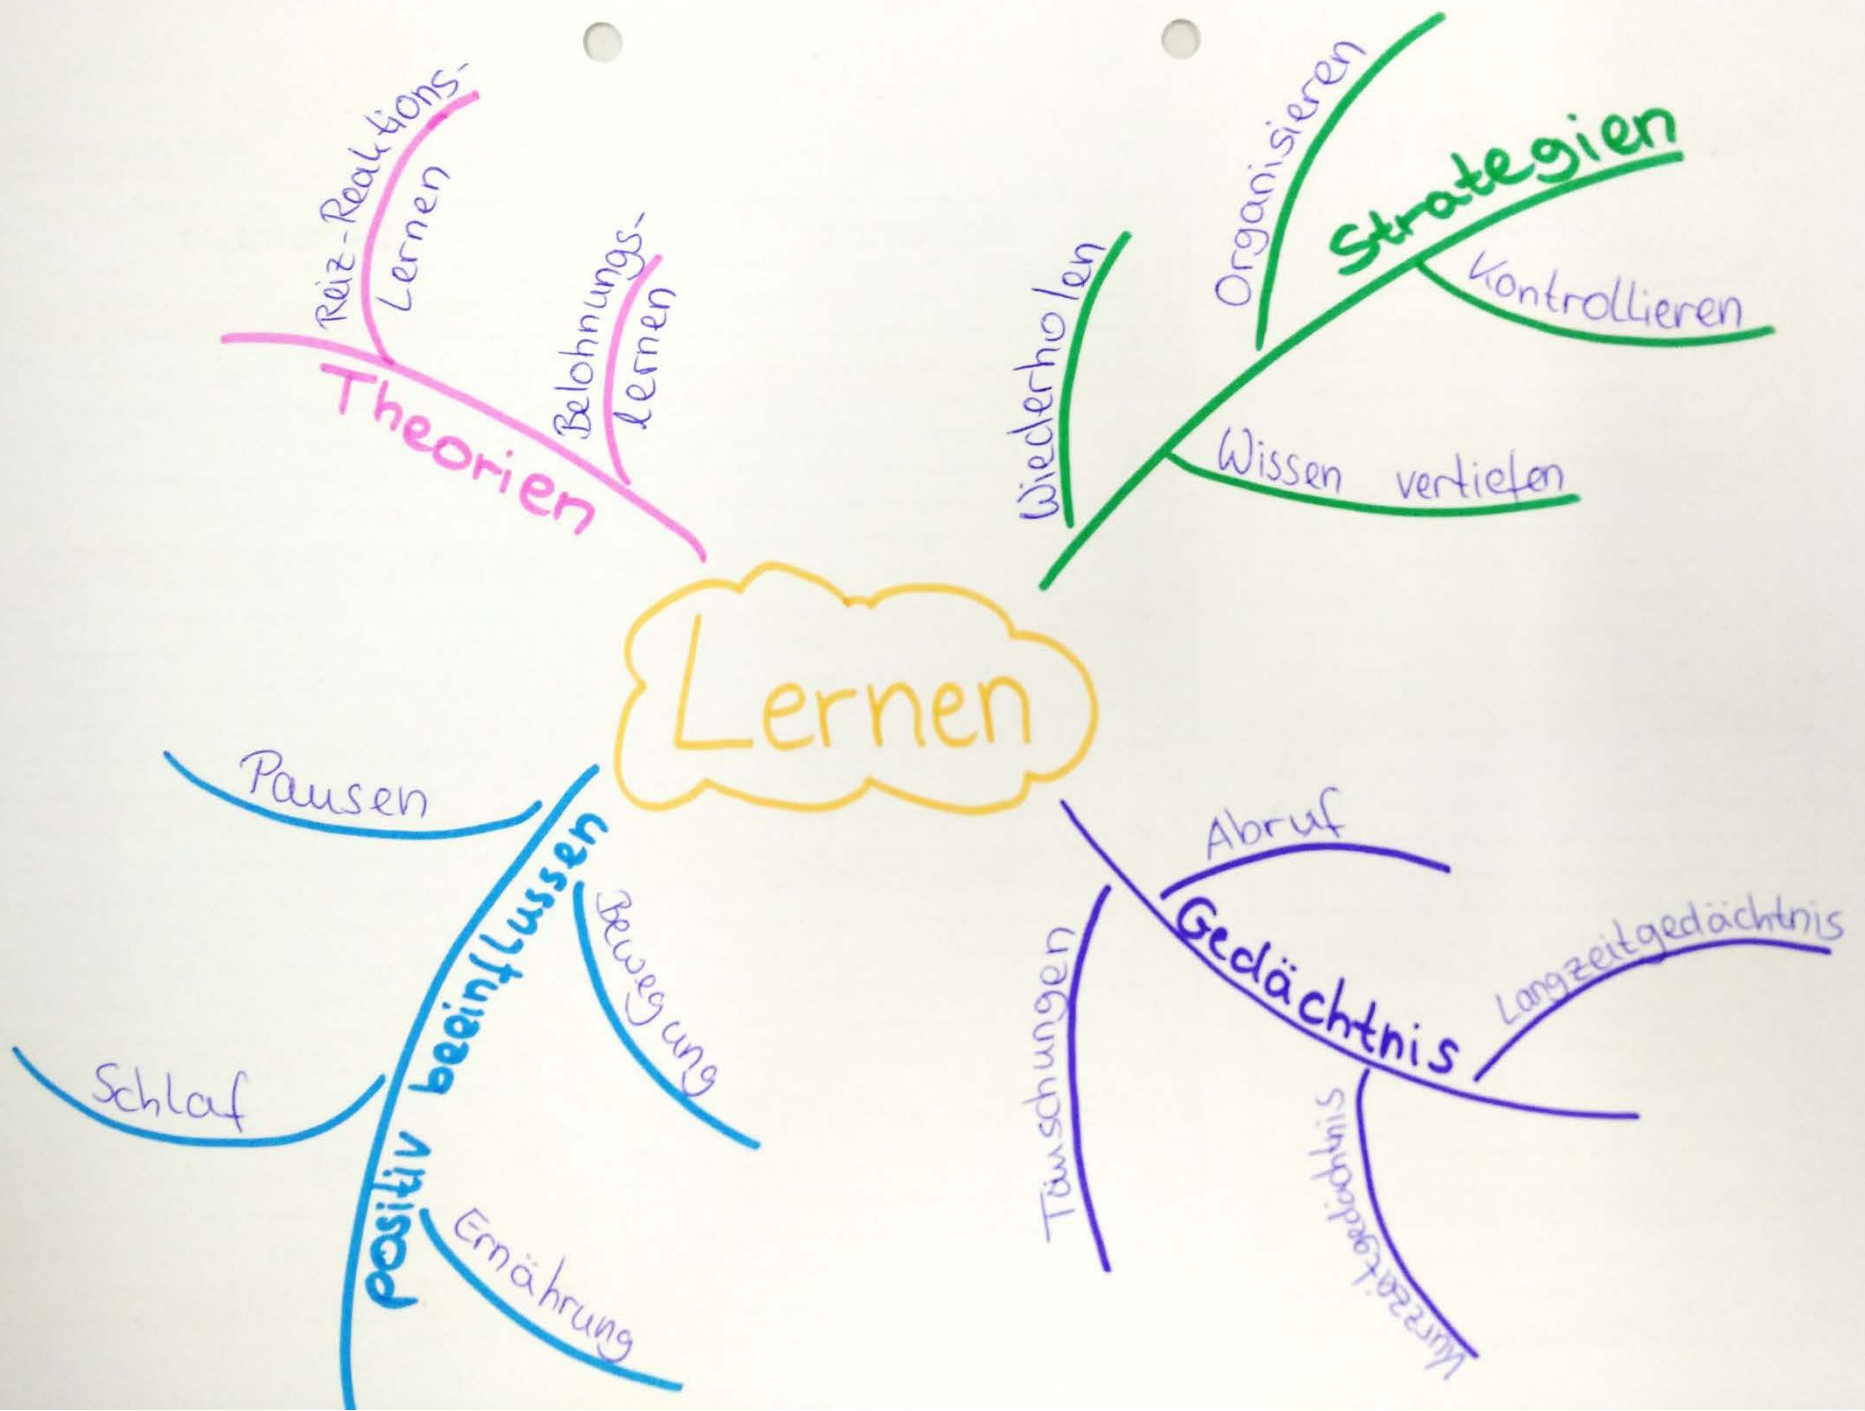 Lernen
Theorien
Reiz-Reaktions-
Lernen
Belohnungs-
lernen
Strategien
Wiederholen
Organisieren
Kontrollieren
Wissen vertiefen
Gedächtnis
Abruf
Langzeitgedächtnis
Kurzzeitgedächtnis
Täuschungen
positiv beeinflussen
Pausen
Bewegung
Schlaf
Ernährung